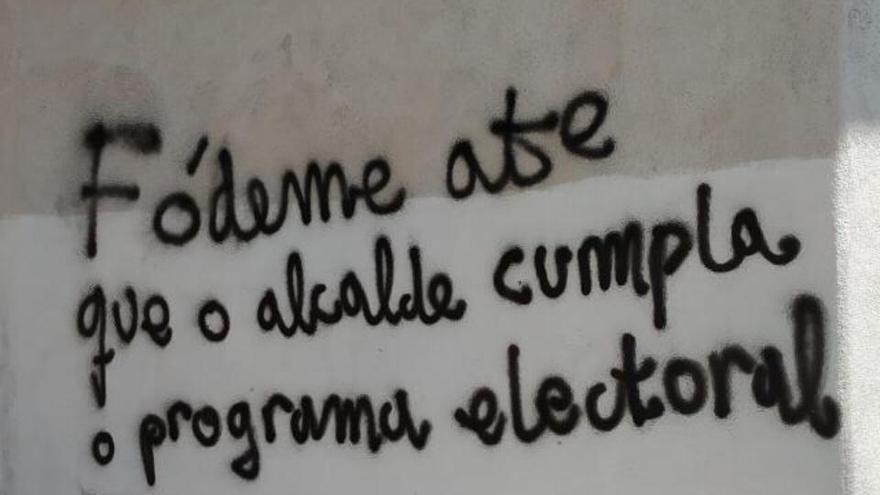 Fódeme ate
que o alcalde cumpla
o programa electoral